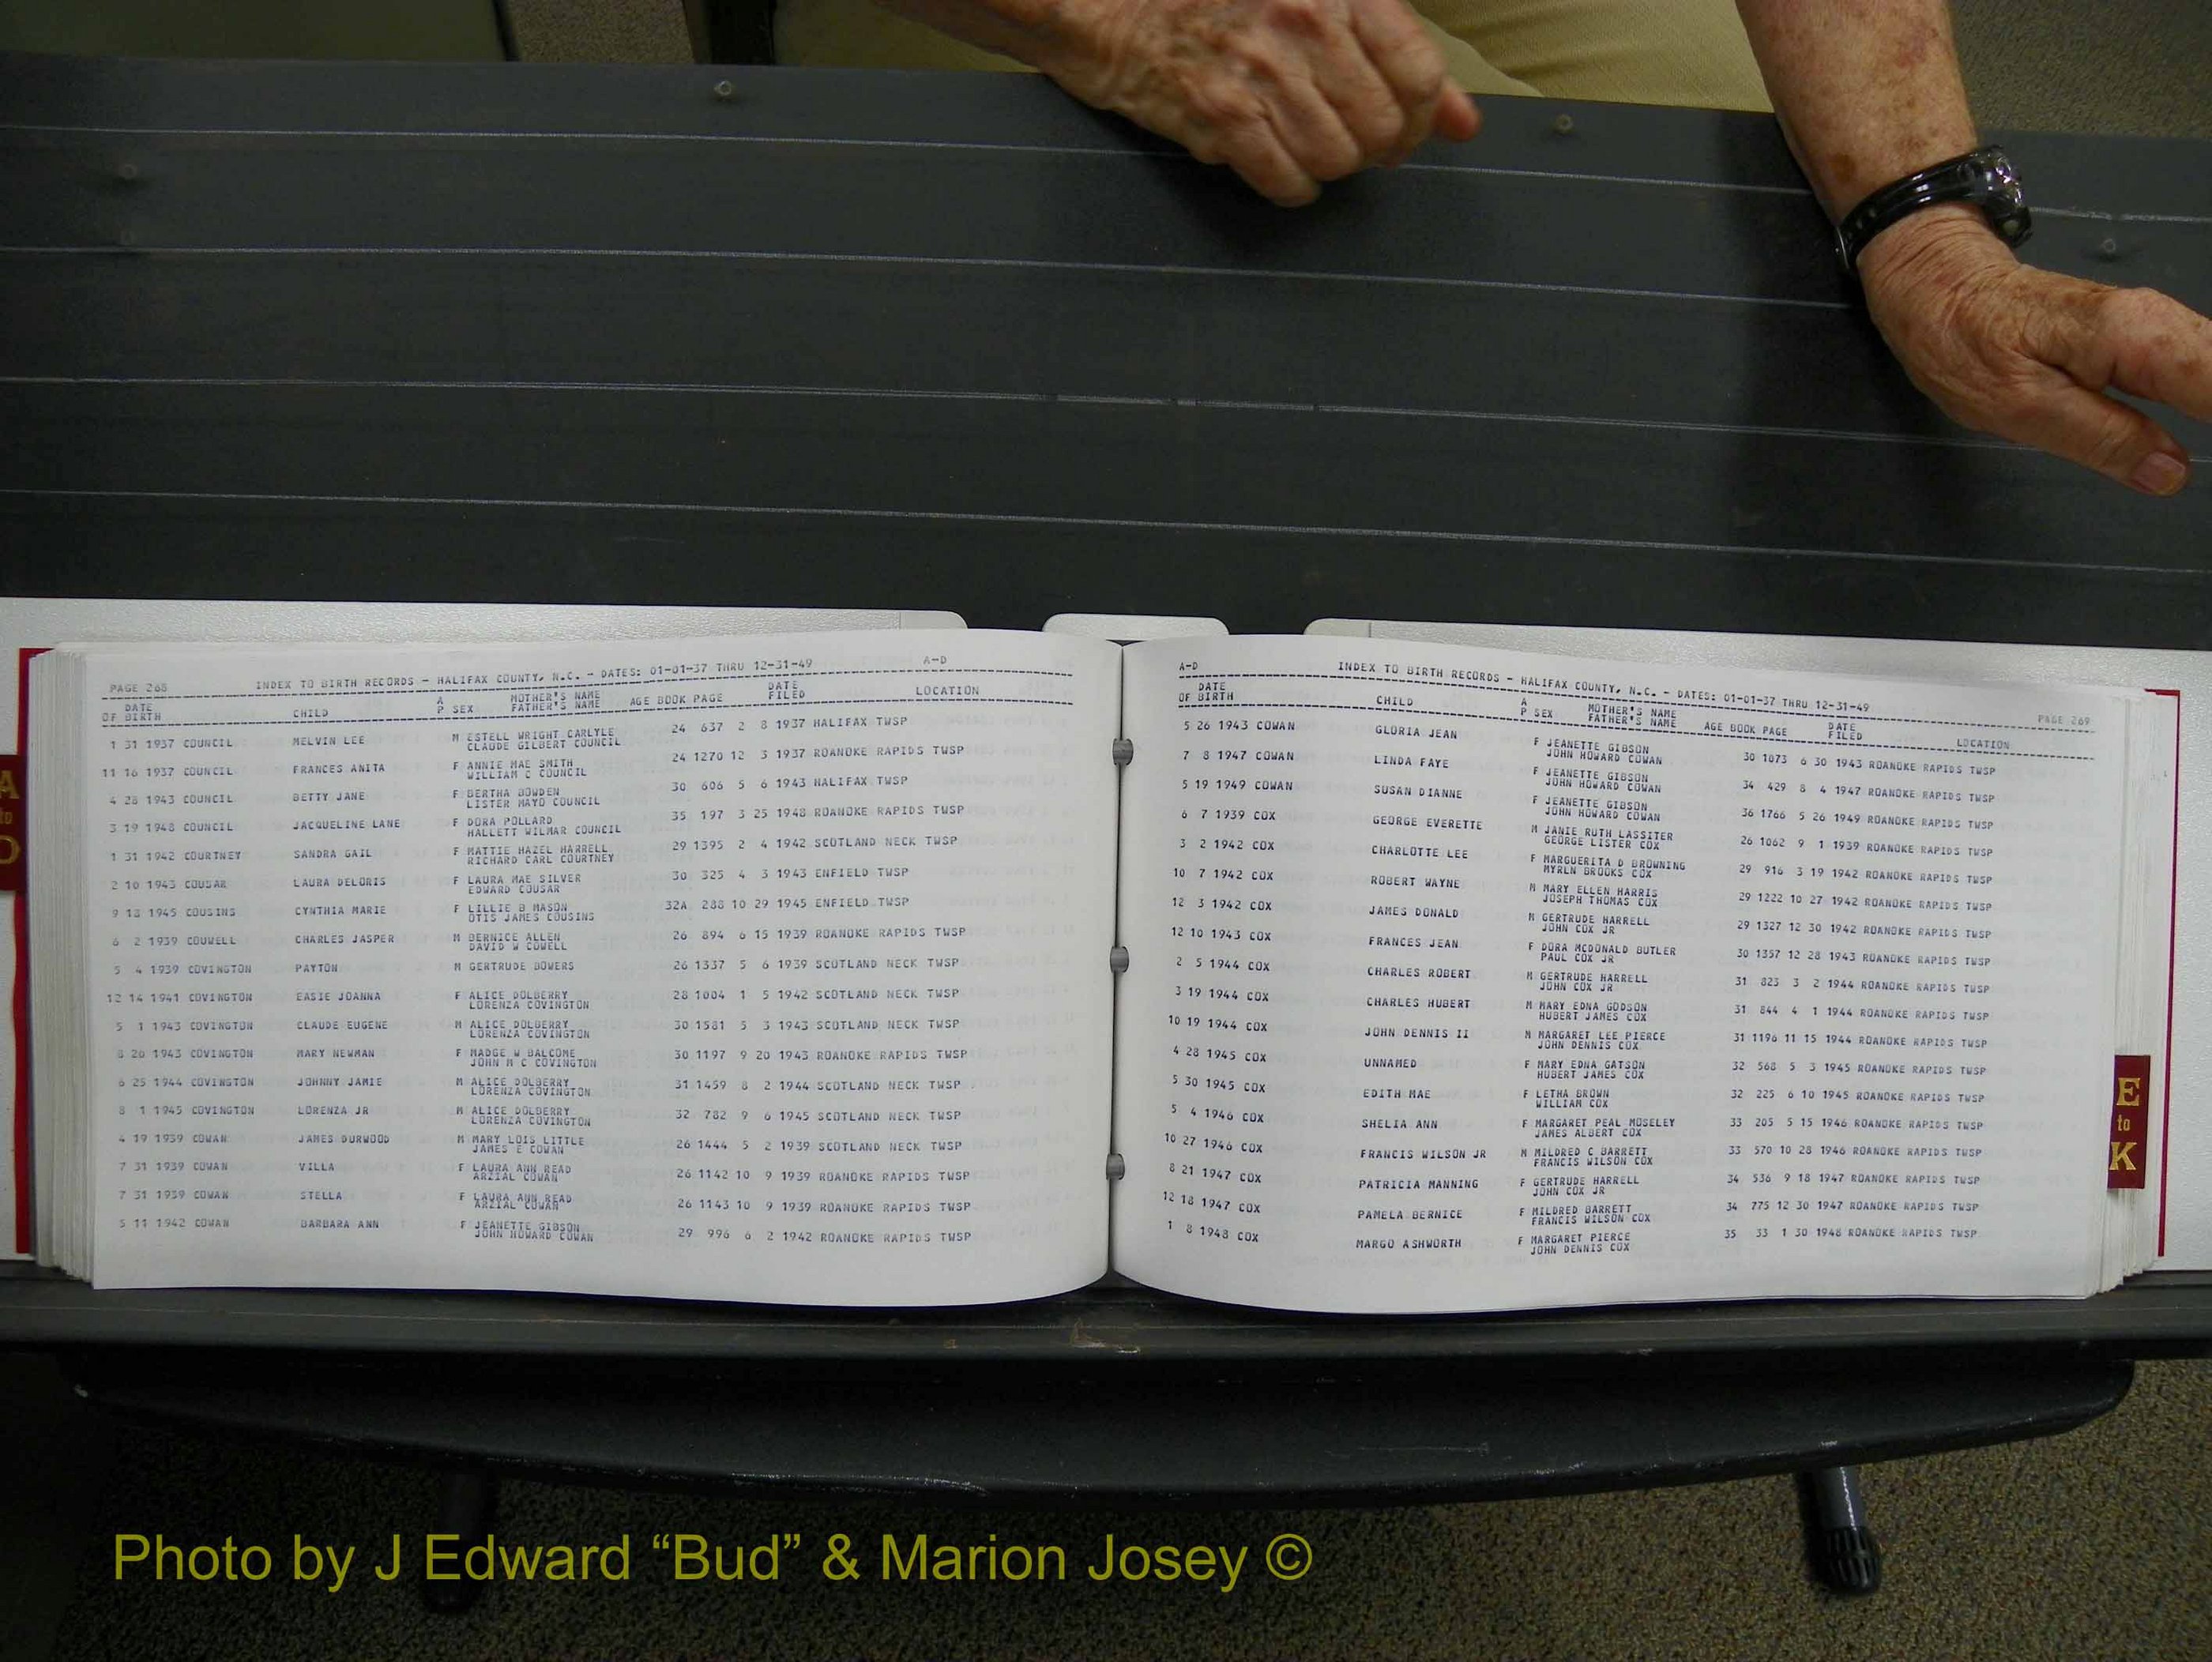 A
to
D
PAGE 268 INDEX TO BIRTH RECORDS - HALIFAX COUNTY, N.C. - DATES: 01-01-37 THRU 12-31-49 A-D
DATE OF BIRTH CHILD A P SEX MOTHER'S NAME FATHER'S NAME AGE BOOK PAGE DATE FILED LOCATION
1 31 1937 COUNCIL MELVIN LEE M ESTELL WRIGHT CARLYLE 24 637 2 8 1937 HALIFAX TWSP
CLAUDE GILBERT COUNCIL
11 16 1937 COUNCIL FRANCES ANITA F ANNIE MAE SMITH 24 1270 12 3 1937 ROANOKE RAPIDS TWSP
WILLIAM C COUNCIL
4 28 1943 COUNCIL BETTY JANE F BERTHA BOWDEN 30 606 5 6 1943 HALIFAX TWSP
LISTER MAYO COUNCIL
3 19 1948 COUNCIL JACQUELINE LANE F DORA POLLARD 35 197 3 25 1948 ROANOKE RAPIDS TWSP
HALLETT WILMAR COUNCIL
1 31 1942 COURTNEY SANDRA GAIL F MATTIE HAZEL HARRELL 29 1395 2 4 1942 SCOTLAND NECK TWSP
RICHARD CARL COURTNEY
2 10 1943 COUSAR LAURA DELORIS F LAURA MAE SILVER 30 325 4 3 1943 ENFIELD TWSP
EDWARD COUSAR
9 18 1945 COUSINS CYNTHIA MARIE F LILLIE B MASON 32A 288 10 29 1945 ENFIELD TWSP
OTIS JAMES COUSINS
6 2 1939 COUWELL CHARLES JASPER M BERNICE ALLEN 26 894 6 15 1939 ROANOKE RAPIDS TWSP
DAVID W COWELL
5 4 1939 COVINGTON PAYTON M GERTRUDE BOWERS 26 1337 5 6 1939 SCOTLAND NECK TWSP
12 14 1941 COVINGTON EASIE JOANNA F ALICE DOLBERRY 28 1004 1 5 1942 SCOTLAND NECK TWSP
LORENZA COVINGTON
5 1 1943 COVINGTON CLAUDE EUGENE M ALICE DOLBERRY 30 1581 5 3 1943 SCOTLAND NECK TWSP
LORENZA COVINGTON
8 20 1943 COVINGTON MARY NEWMAN F MADGE W BALCOME 30 1197 9 20 1943 ROANOKE RAPIDS TWSP
JOHN M C COVINGTON
6 25 1944 COVINGTON JOHNNY JAMIE M ALICE DOLBERRY 31 1459 8 2 1944 SCOTLAND NECK TWSP
LORENZA COVINGTON
8 1 1945 COVINGTON LORENZA JR M ALICE DOLBERRY 32 782 9 6 1945 SCOTLAND NECK TWSP
LORENZA COVINGTON
4 19 1939 COWAN JAMES DURWOOD M MARY LOIS LITTLE 26 1444 5 2 1939 SCOTLAND NECK TWSP
JAMES E COWAN
7 31 1939 COWAN VILLA F LAURA ANN READ 26 1142 10 9 1939 ROANOKE RAPIDS TWSP
ARZIAL COWAN
7 31 1939 COWAN STELLA F LAURA ANN READ 26 1143 10 9 1939 ROANOKE RAPIDS TWSP
ARZIAL COWAN
5 11 1942 COWAN BARBARA ANN F JEANETTE GIBSON 29 996 6 2 1942 ROANOKE RAPIDS TWSP
JOHN HOWARD COWAN
A-D INDEX TO BIRTH RECORDS - HALIFAX COUNTY, N.C. - DATES: 01-01-37 THRU 12-31-49 PAGE 269
DATE OF BIRTH CHILD A P SEX MOTHER'S NAME FATHER'S NAME AGE BOOK PAGE DATE FILED LOCATION
5 26 1943 COWAN GLORIA JEAN F JEANETTE GIBSON 30 1073 6 30 1943 ROANOKE RAPIDS TWSP
JOHN HOWARD COWAN
7 8 1947 COWAN LINDA FAYE F JEANETTE GIBSON 34 429 8 4 1947 ROANOKE RAPIDS TWSP
JOHN HOWARD COWAN
5 19 1949 COWAN SUSAN DIANNE F JEANETTE GIBSON 36 1766 5 26 1949 ROANOKE RAPIDS TWSP
JOHN HOWARD COWAN
6 7 1939 COX GEORGE EVERETTE M JANIE RUTH LASSITER 26 1062 9 1 1939 ROANOKE RAPIDS TWSP
GEORGE LISTER COX
3 2 1942 COX CHARLOTTE LEE F MARGUERITA D BROWNING 29 916 3 19 1942 ROANOKE RAPIDS TWSP
MYRLN BROOKS COX
10 7 1942 COX ROBERT WAYNE M MARY ELLEN HARRIS 29 1222 10 27 1942 ROANOKE RAPIDS TWSP
JOSEPH THOMAS COX
12 3 1942 COX JAMES DONALD M GERTRUDE HARRELL 29 1327 12 30 1942 ROANOKE RAPIDS TWSP
JOHN COX JR
12 10 1943 COX FRANCES JEAN F DORA MCDONALD BUTLER 30 1357 12 28 1943 ROANOKE RAPIDS TWSP
PAUL COX JR
2 5 1944 COX CHARLES ROBERT M GERTRUDE HARRELL 31 823 3 2 1944 ROANOKE RAPIDS TWSP
JOHN COX JR
3 19 1944 COX CHARLES HUBERT M MARY EDNA GODSON 31 844 4 1 1944 ROANOKE RAPIDS TWSP
HUBERT JAMES COX
10 19 1944 COX JOHN DENNIS II M MARGARET LEE PIERCE 31 1196 11 15 1944 ROANOKE RAPIDS TWSP
JOHN DENNIS COX
4 28 1945 COX UNNAMED F MARY EDNA GATSON 32 568 5 3 1945 ROANOKE RAPIDS TWSP
HUBERT JAMES COX
5 30 1945 COX EDITH MAE F LETHA BROWN 32 225 6 10 1945 ROANOKE RAPIDS TWSP
WILLIAM COX
5 4 1946 COX SHELIA ANN F MARGARET PEAL MOSELEY 33 205 5 15 1946 ROANOKE RAPIDS TWSP
JAMES ALBERT COX
10 27 1946 COX FRANCIS WILSON JR M MILDRED C BARRETT 33 570 10 28 1946 ROANOKE RAPIDS TWSP
FRANCIS WILSON COX
8 21 1947 COX PATRICIA MANNING F GERTRUDE HARRELL 34 536 9 18 1947 ROANOKE RAPIDS TWSP
JOHN COX JR
12 18 1947 COX PAMELA BERNICE F MILDRED BARRETT 34 775 12 30 1947 ROANOKE RAPIDS TWSP
FRANCIS WILSON COX
1 8 1948 COX MARGO ASHWORTH F MARGARET PIERCE 35 33 1 30 1948 ROANOKE RAPIDS TWSP
JOHN DENNIS COX
E
to
K
Photo by J Edward “Bud” & Marion Josey ©